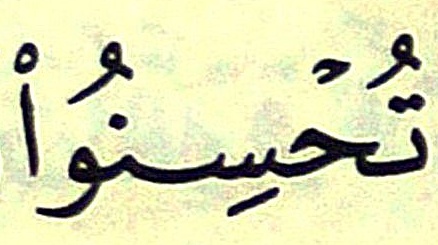 تُحْسِنُواْ